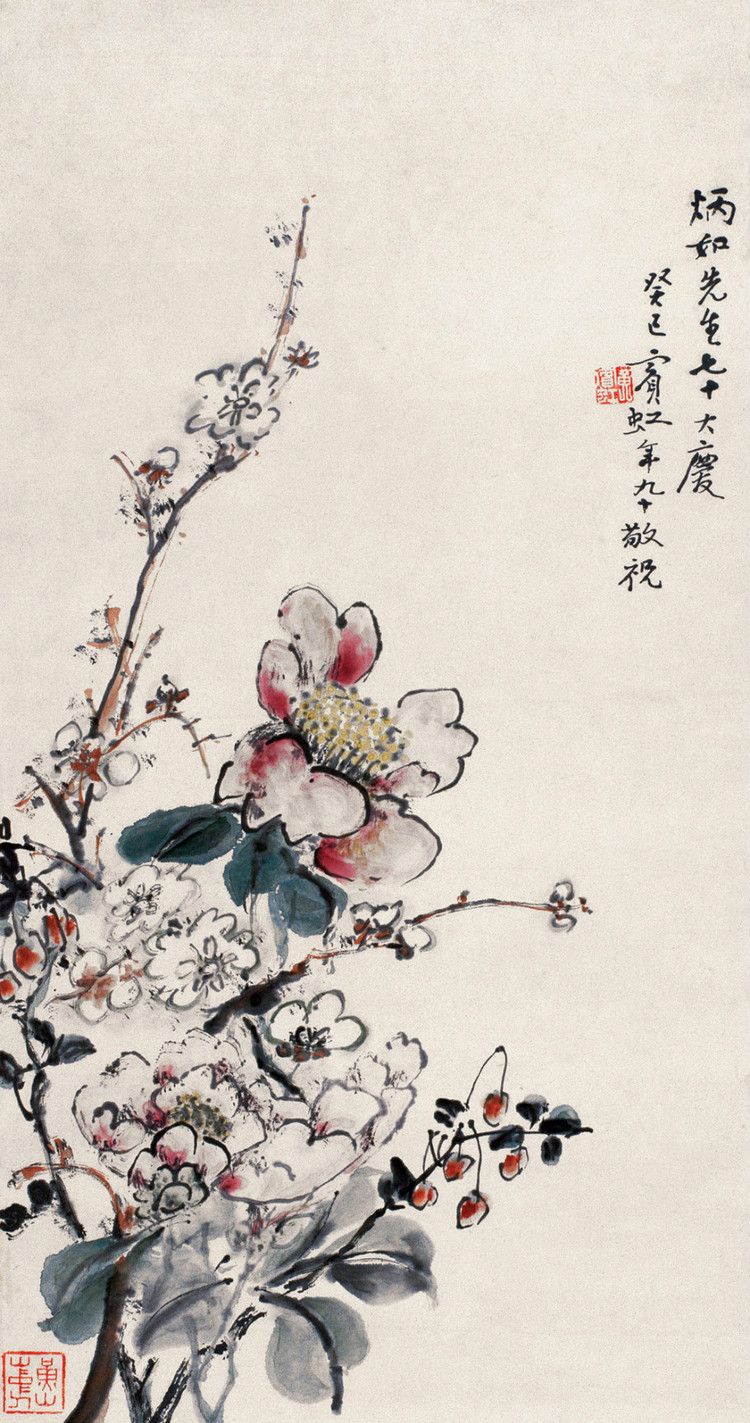 炳如先生七十大慶
癸巳賓虹年九十敬祝
黃賓虹
黃山山中人